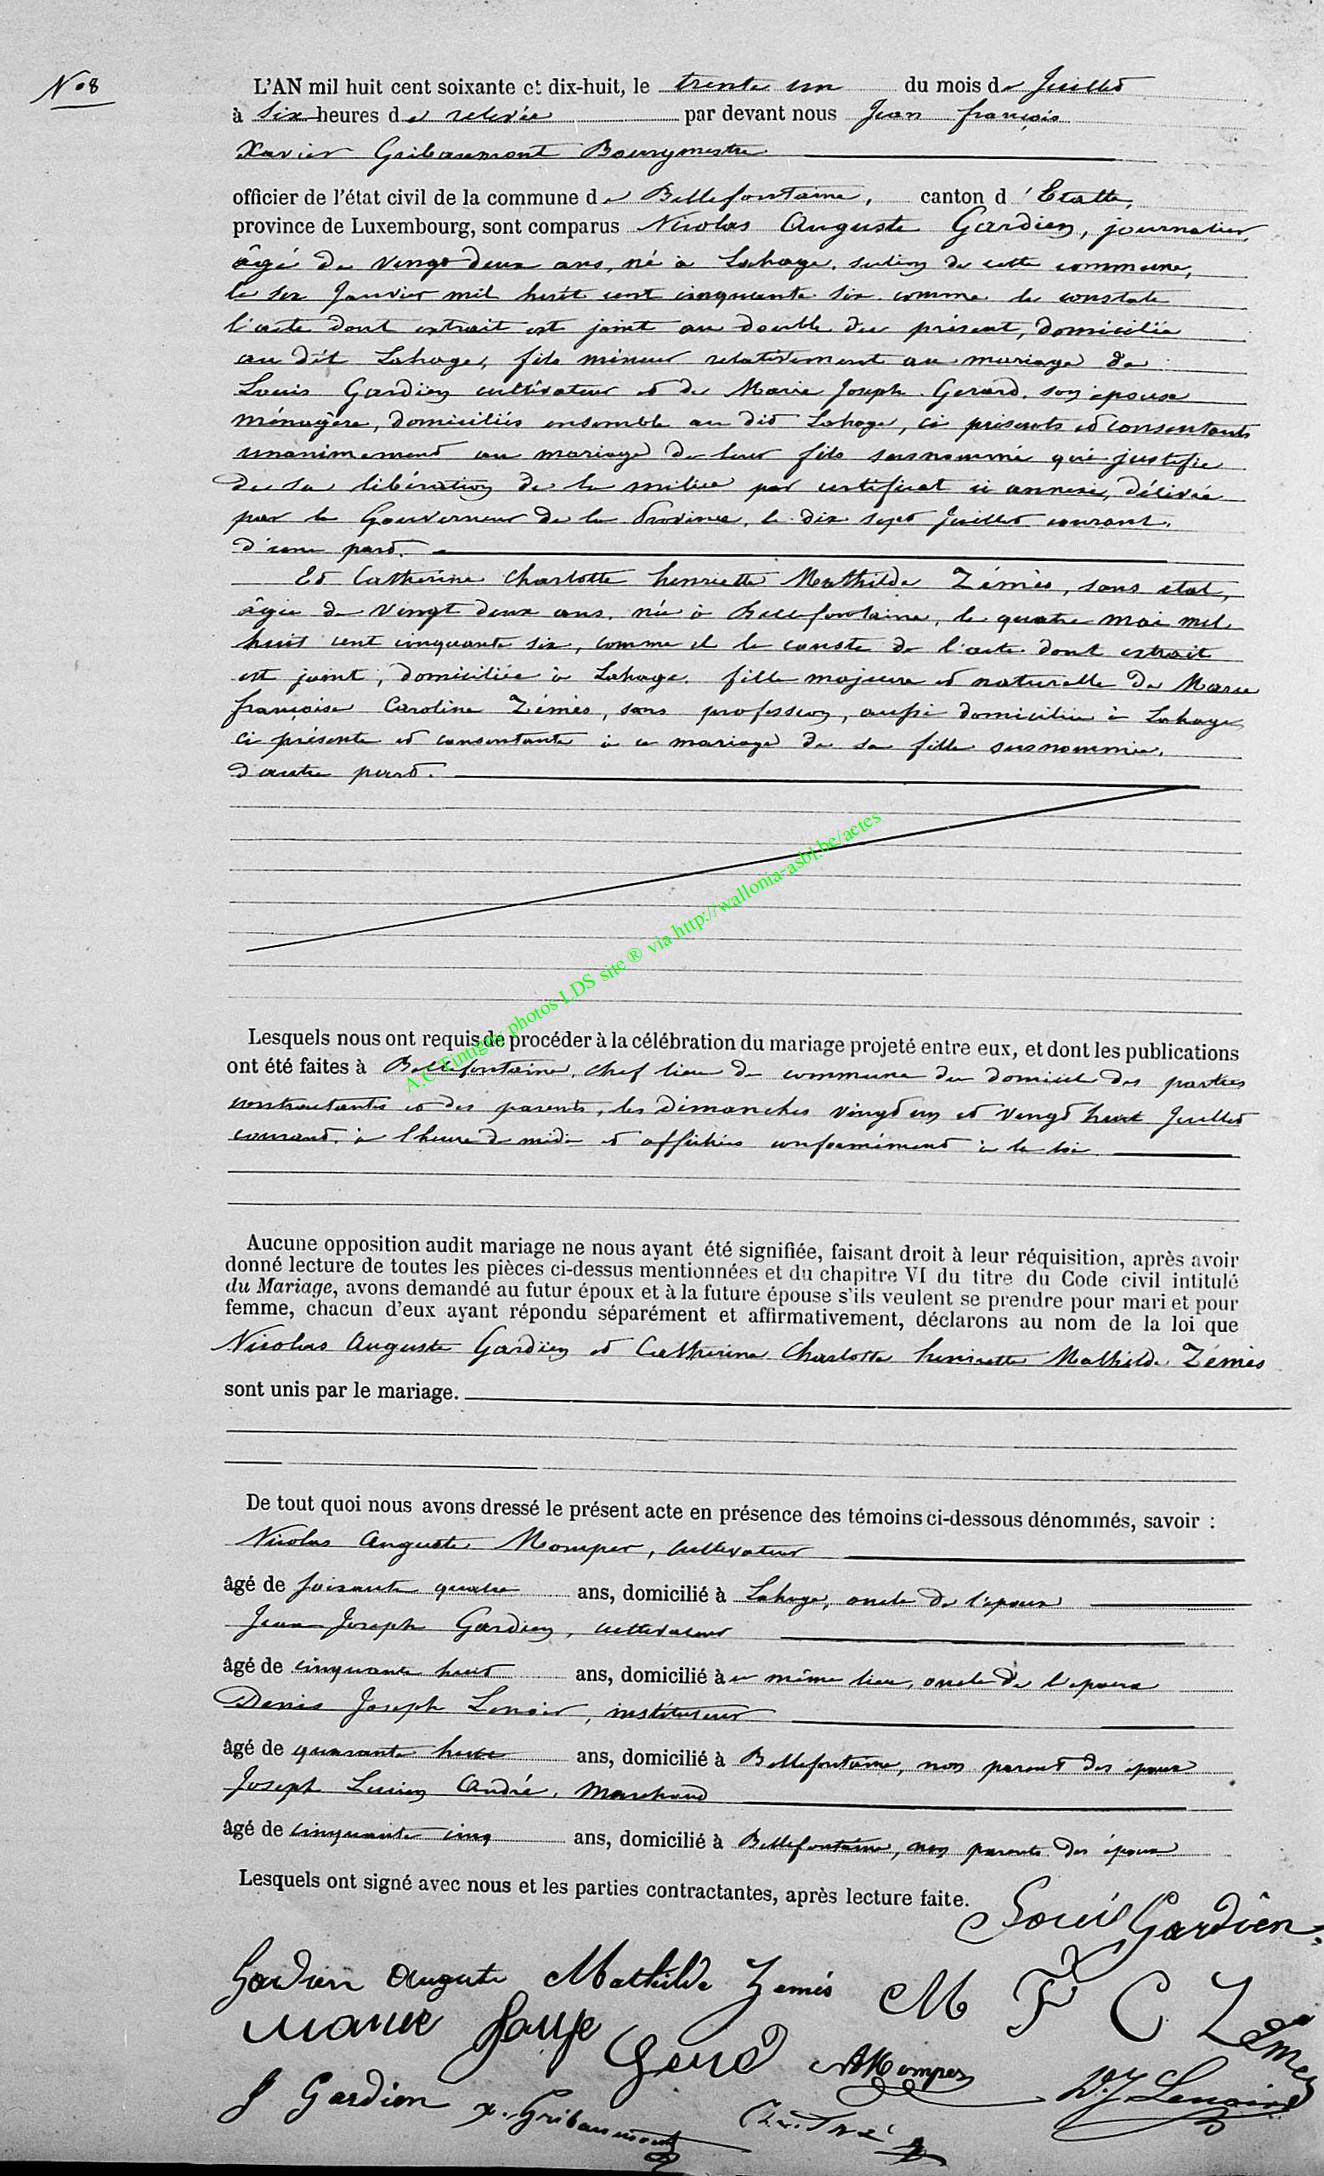 N° 8
L'AN mil huit cent soixante et dix-huit, le trente un du mois de Juillet
à six heures de relevée par devant nous Jean françois
Xavier Gribaumont Bourgmestre
officier de l'état civil de la commune de Bellefontaine, canton d'Etalle,
province de Luxembourg, sont comparus Nicolas Auguste Gardien, journalier,
âgé de vingt deux ans, né à Lahage, section de cette commune,
le six Janvier mil huit cent cinquante six comme le constate
l'acte dont extrait est joint au double du présent, domicilié
au dit Lahage, fils mineur relativement au mariage de
Louis Gardien cultivateur et de Marie Joseph Gerard, son épouse
ménagère, domiciliés ensemble au dit Lahage, ci présents et consentants
unanimement au mariage de leur fils susnommé qui justifie
de sa libération de la milice par certificat ci annexé, délivré
par le Gouverneur de la Province, le dix sept Juillet courant,
d'une part.
Et Catherine Charlotte henriette Mathilde Zémès, sans état,
âgée de vingt deux ans, née à Bellefontaine, le quatre mai mil
huit cent cinquante six, comme il le conste de l'acte dont extrait
est joint, domiciliée à Lahage, fille majeure et naturelle de Marie
françoise Caroline Zémès, sans profession, aussi domiciliée à Lahage
ci présente et consentante à ce mariage de sa fille susnommée,
d'autre part.
A.C. Tintigny photos LDS site ® via http://wallonia-asbl.be/actes
Lesquels nous ont requis de procéder à la célébration du mariage projeté entre eux, et dont les publications
ont été faites à Bellefontaine, chef lieu de commune du domicile des parties
contractantes et des parents, les dimanches vingt un et vingt huit Juillet
courant, à l'heure de midi et affichées conformément à la loi
Aucune opposition audit mariage ne nous ayant été signifiée, faisant droit à leur réquisition, après avoir
donné lecture de toutes les pièces ci-dessus mentionnées et du chapitre VI du titre du Code civil intitulé
du Mariage, avons demandé au futur époux et à la future épouse s'ils veulent se prendre pour mari et pour
femme, chacun d'eux ayant répondu séparément et affirmativement, déclarons au nom de la loi que
Nicolas Auguste Gardien et Catherine Charlotte henriette Mathilde Zémès
sont unis par le mariage.
De tout quoi nous avons dressé le présent acte en présence des témoins ci-dessous dénommés, savoir :
Nicolas Auguste Momper, cultivateur
âgé de soixante quatre ans, domicilié à Lahage, oncle de l'époux
Jean Joseph Gardien, cultivateur
âgé de cinquante huit ans, domicilié à ce même lieu, oncle de l'époux
Denis Joseph Lenoir, instituteur
âgé de quarante huit ans, domicilié à Bellefontaine, non parent des époux
Joseph Lucien André, Marchand
âgé de cinquante cinq ans, domicilié à Bellefontaine, non parents des époux
Lesquels ont signé avec nous et les parties contractantes, après lecture faite.
Louis Gardien
Gardien Auguste Mathilde Zemès M F C Zémes
Marie Gerard AMomper D. J. Lenoir
J Gardien X. Gribaumont